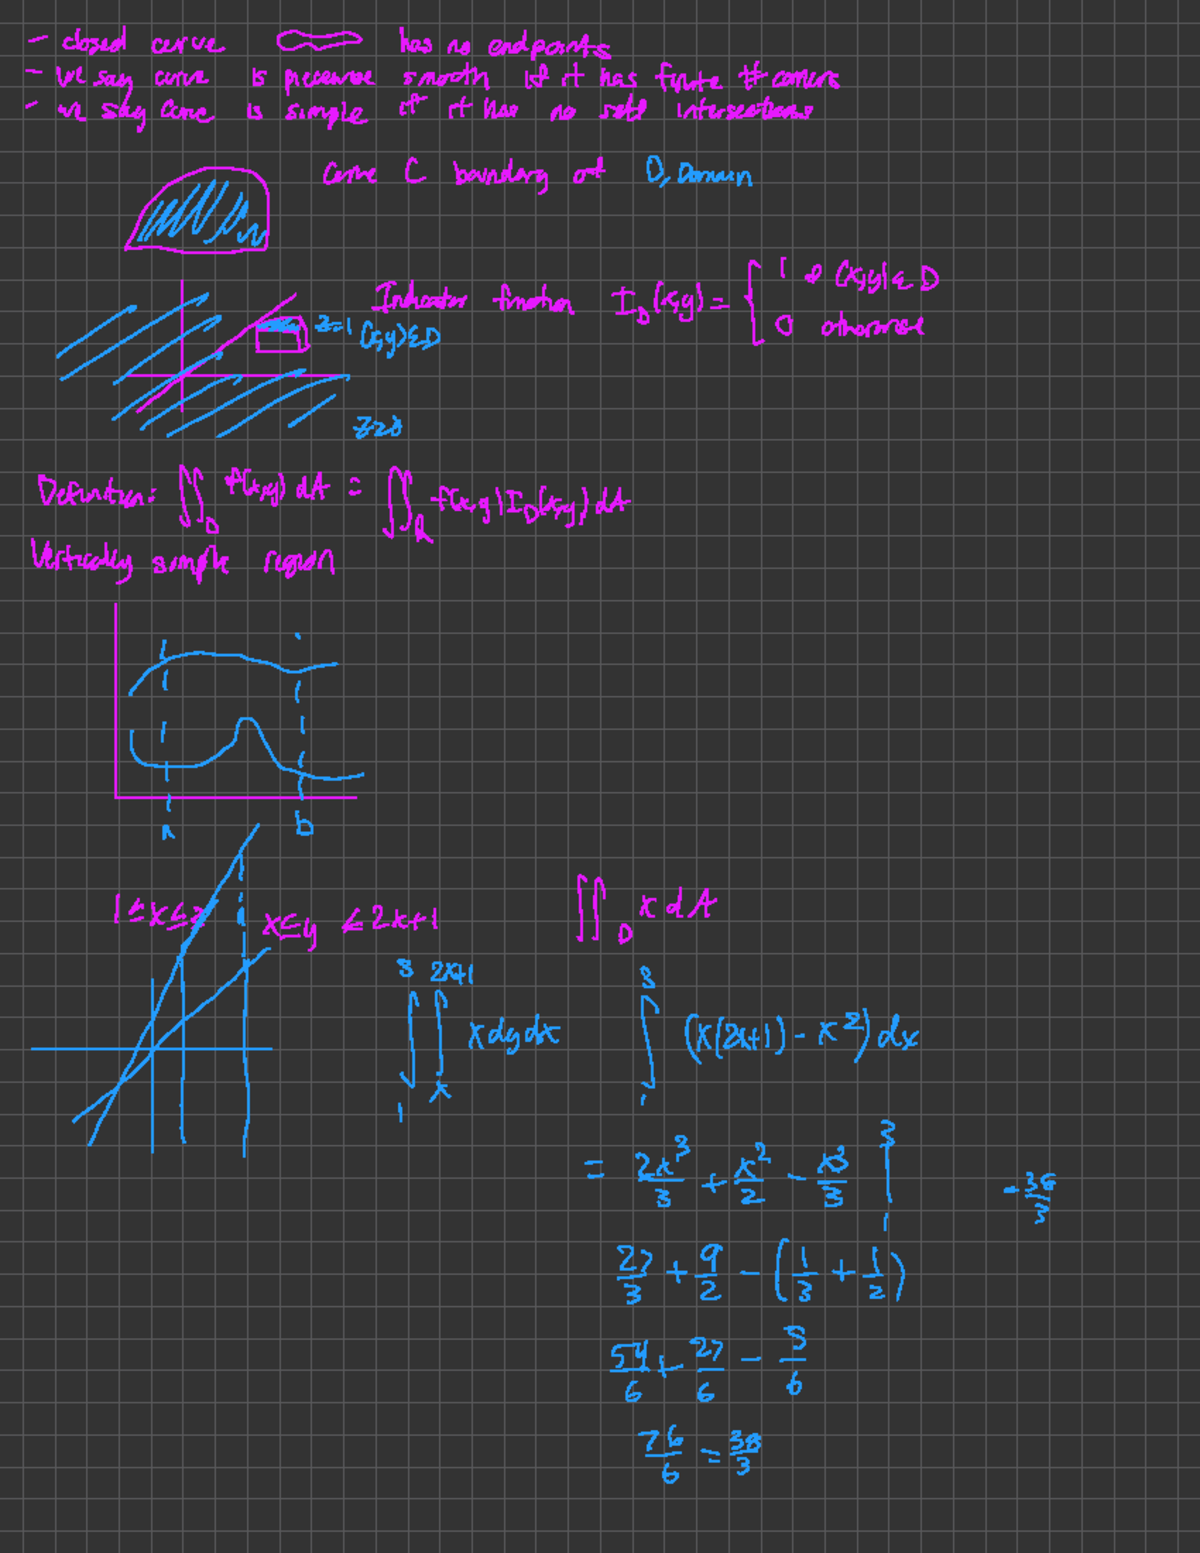 - closed curve has no endpoints
- we say curve is piecewise smooth if it has finite # corners
- we say curve is simple if it has no self intersections
Curve C boundary of D, Domain
Indicator function I_D(x,y) = { 1 if (x,y) ∈ D
0 otherwise
z=1 (x,y) ∈ D
z=0
Definition: ∬_D f(x,y) dA = ∬_R f(x,y) I_D(x,y) dA
Vertically simple region
a b
1 ≤ x ≤ 3 x ≤ y ≤ 2x+1 ∬_D x dA
∫_1^3 ∫_x^{2x+1} x dy dx ∫_1^3 (x(2x+1) - x^2) dx
= 2x^3/3 + x^2/2 - x^3/3 |_1^3 = 38/3
27/3 + 9/2 - (1/3 + 1/2)
54/6 + 27/6 - 5/6
76/6 = 38/3